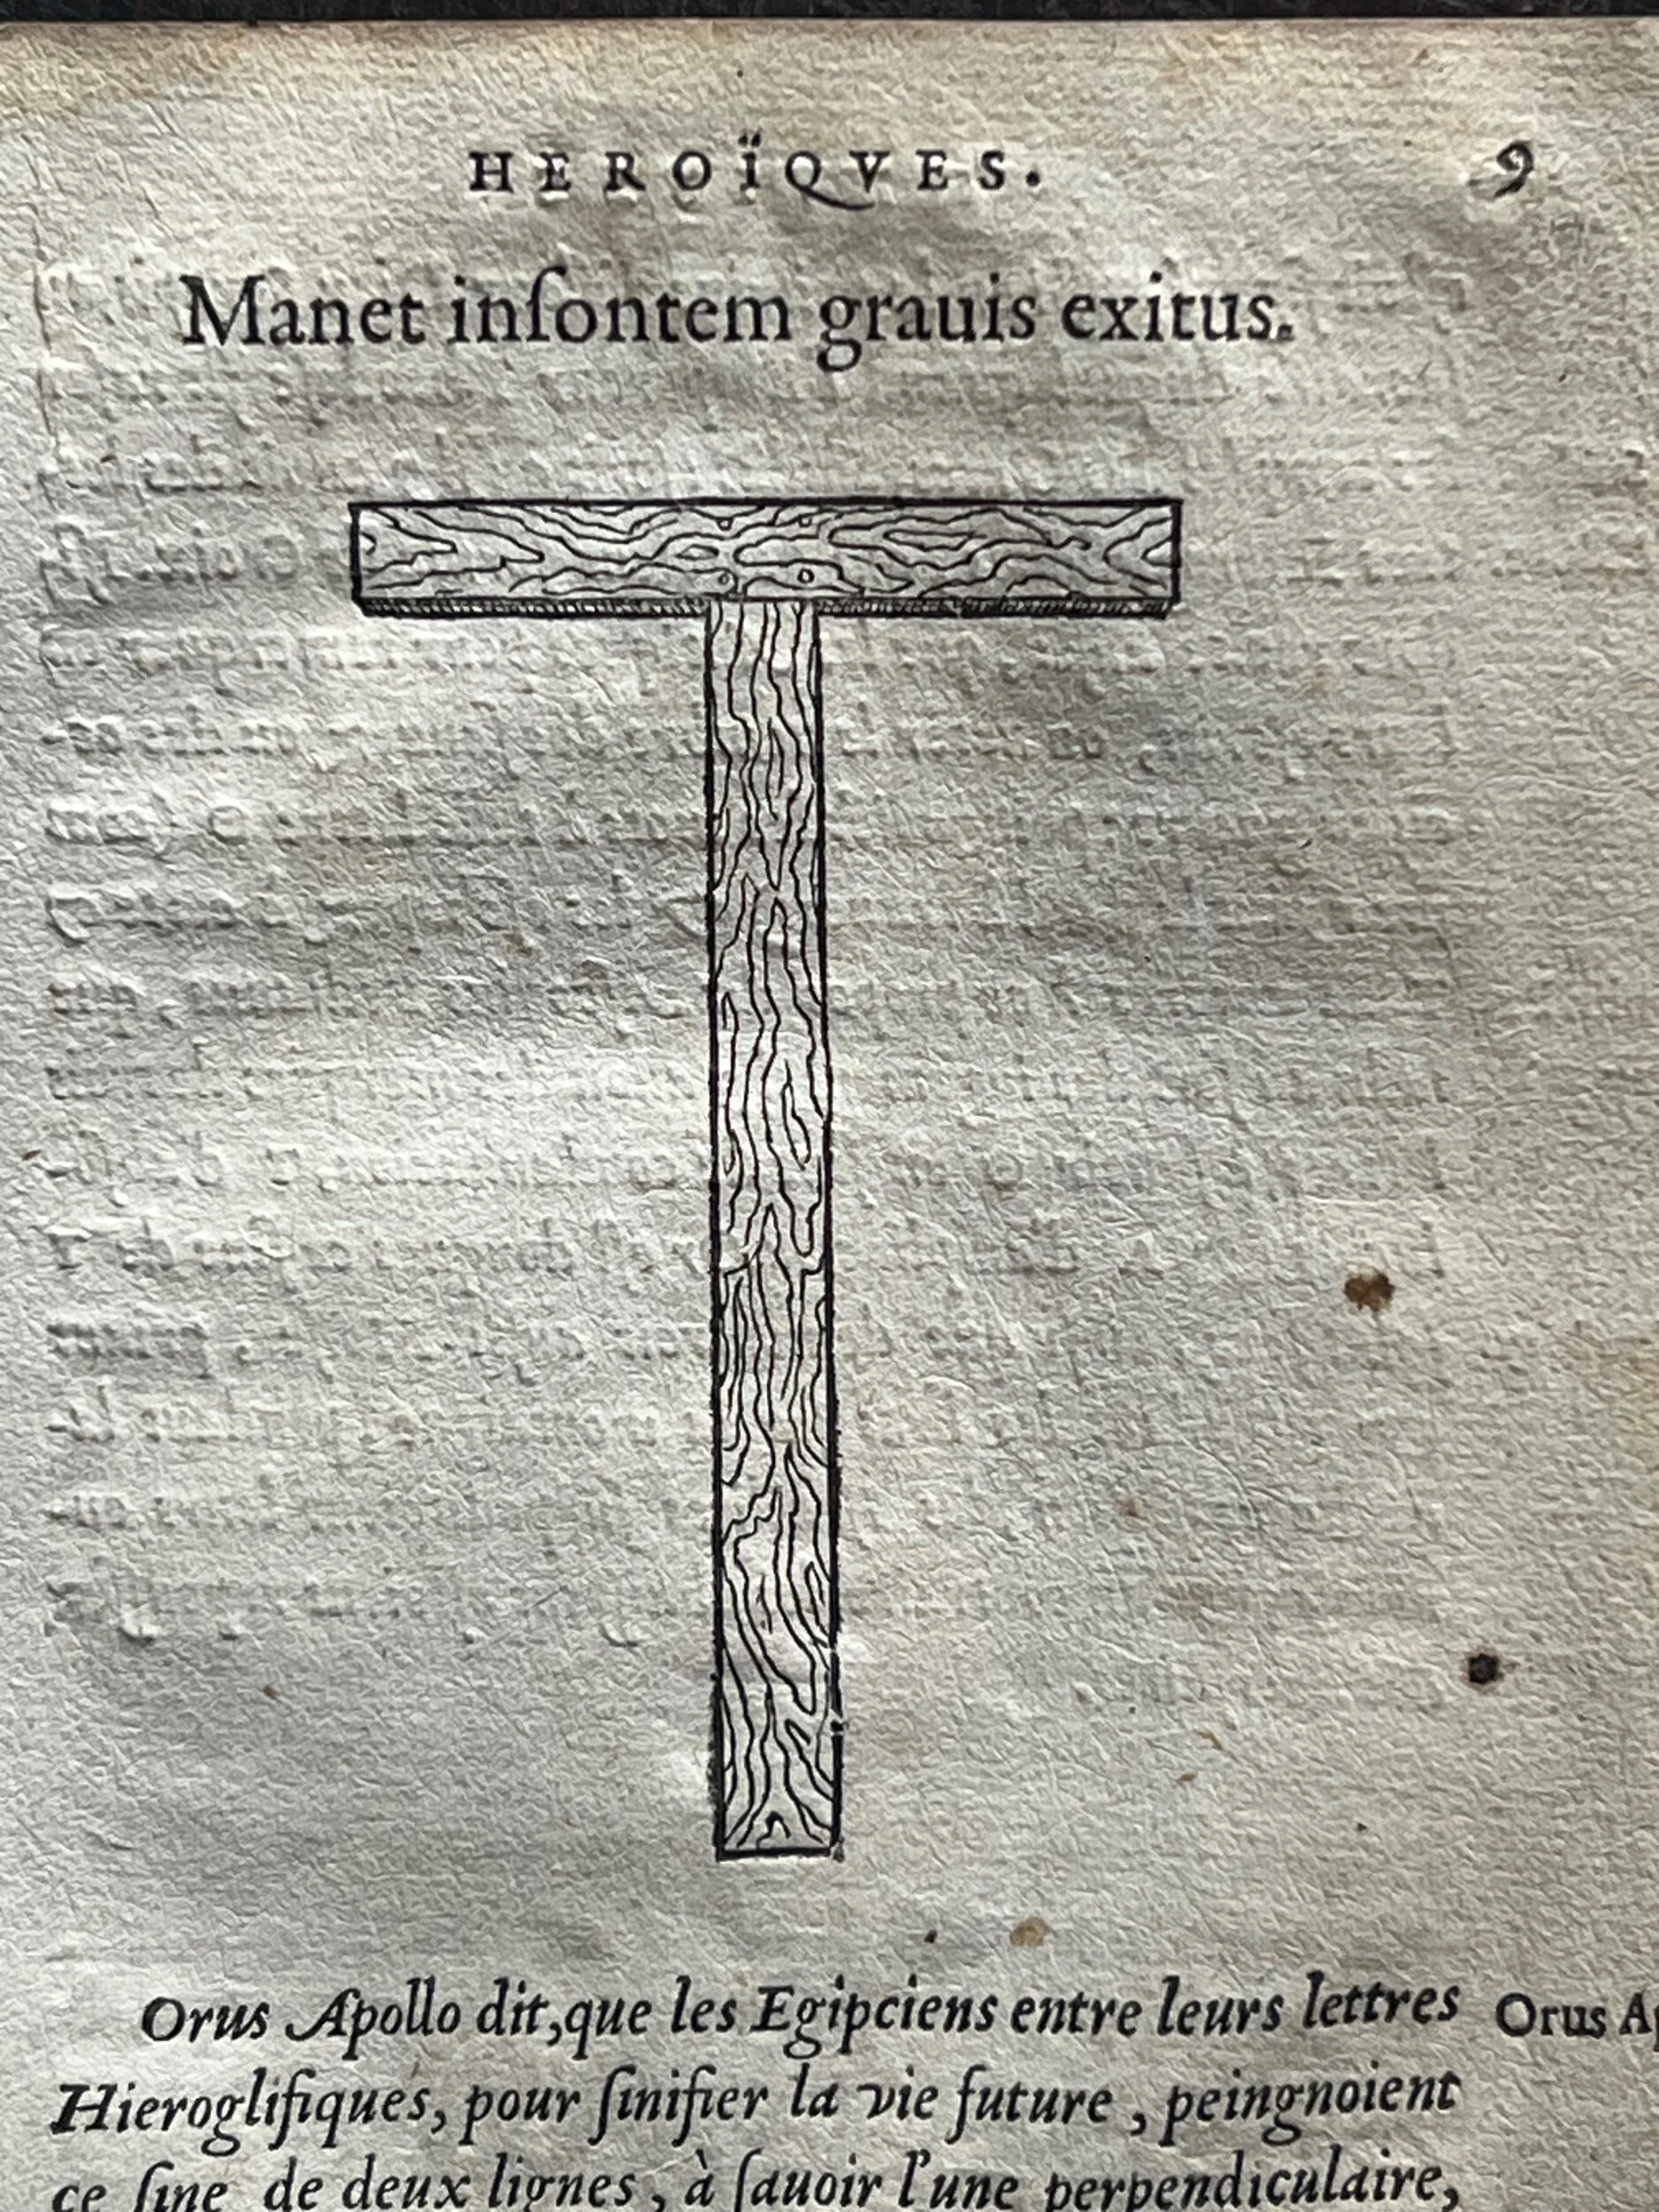 HEROÏQVES. 9
Manet inſontem grauis exitus.
Orus Apollo dit,que les Egipciens entre leurs lettres Orus
Hieroglifiques, pour ſinifier la vie future , peingnoient
ce ſine de deux lignes, à ſauoir l'une perpendiculaire,